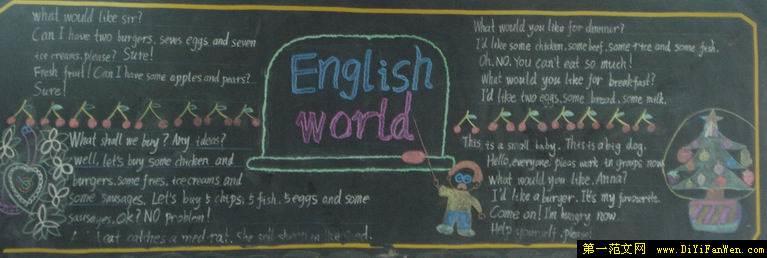 What would like sir?
Can I have two burgers, seves eggs and seven
ice creams, please? Sure!
Fresh fruit! Can I have some apples and pears?
Sure!
What shall we buy? Any ideas?
well, let's buy some chicken and
burgers, some fries, ice creams and
some sausages. Let's buy 5 chips, 5 fish, 5 eggs and some
sausages, Ok? NO problem!
cat catches a rat. She
English
world
What would you like for dinnur?
I'd like some chicken, some beef, some rice and some fish.
Oh, NO. You can't eat so much!
What would you like for breakfast?
I'd like two eggs, some bread, some milk.
This is a small baby. This is a big dog.
Hello, everyone, pleas work in groups now
what would you like, Anna?
I'd like a burger. It's my favourite.
Come on! I'm hungry now.
Help yourself, please!
第一范文网 www.DiYiFanWen.com